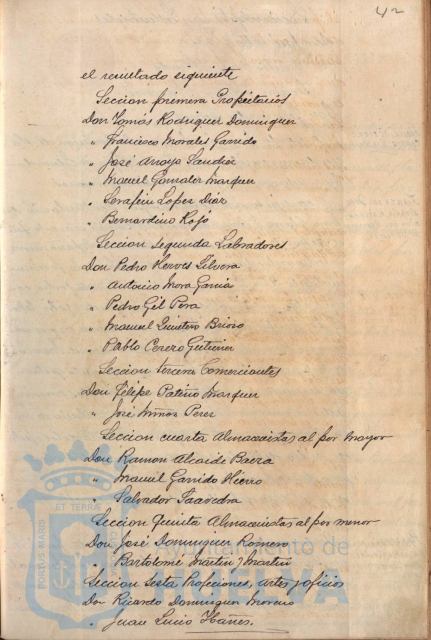 42
el resultado siguiente
Seccion primera Propietarios
Don Tomás Rodriguez Dominguez
" Francisco Morales Garrido
" José Arroyo Sandiez
" Manuel Gonzalez Marquez
" Serafin Lopez Diaz
" Bernardino Rojo
Seccion segunda Labradores
Don Pedro Silvera
" Antonio Mora Garcia
" Pedro Gil Pera
" Manuel Quintero Brioso
" Pablo Cerezo Gutierrez
Seccion tercera Comerciantes
Don Felipe Patiño Marquez
" José Muñoz Perez
Seccion cuarta Almacenistas al por mayor
Don Ramon Alcaide Baeza
" Manuel Garrido Hierro
" Salvador Saavedra
Seccion Quinta Almacenistas al por menor
Don José Dominguez Romero
" Bartolomé Martin y Martin
Seccion Sexta Profeciones, artes y oficios
Don Ricardo Dominguez Moreno
" Juan Lucio Ibañes.
PORTUS MARIS ET TERRA
Ayuntamiento de
HUELVA